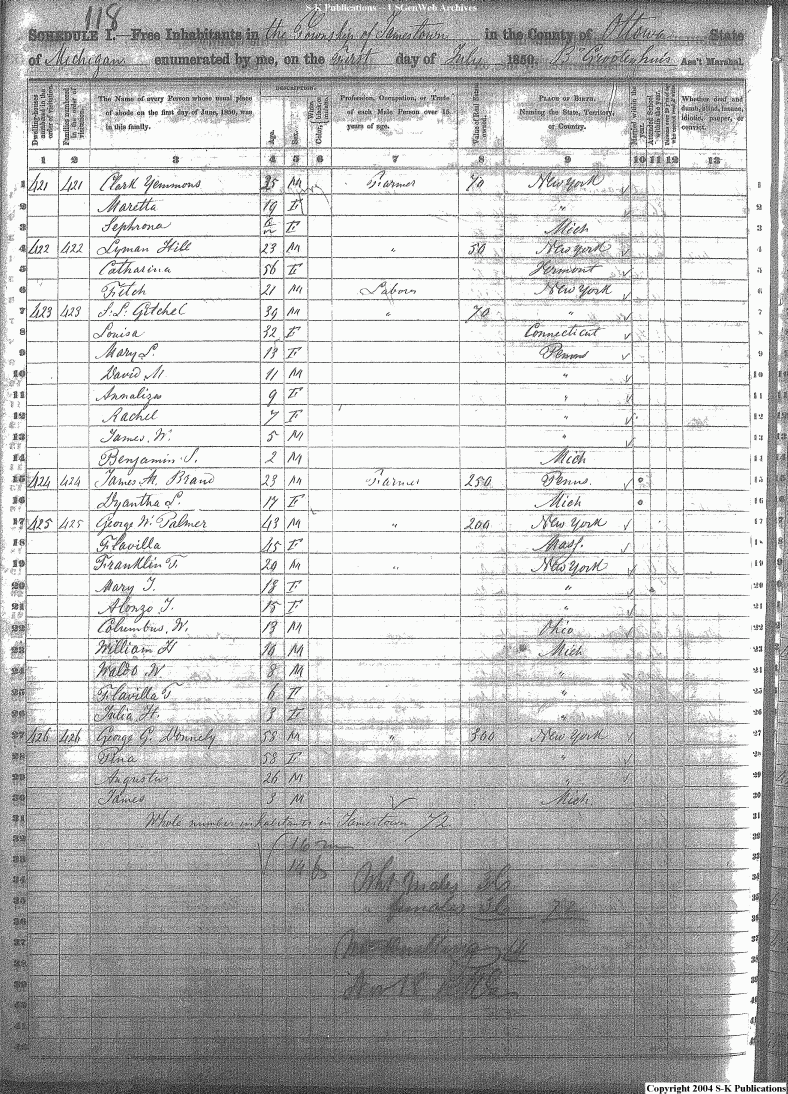 S-K Publications - USGenWeb Archives
118
SCHEDULE I.—Free Inhabitants in the Township of Jamestown in the County of Ottowa State
of Michigan enumerated by me, on the First day of July 1850. Grootenhuis Ass't Marshal.
DESCRIPTION.
Dwelling-houses numbered in the order of visitation.
Families numbered in the order of visitation.
The Name of every Person whose usual place of abode on the first day of June, 1850, was in this family.
Age.
Sex.
Color,
Profession, Occupation, or Trade of each Male Person over 15 years of age.
Value of Real Estate owned.
PLACE OF BIRTH. Naming the State, Territory, or Country.
Married within the year.
Attended School within the year.
Whether deaf and dumb, blind, insane, idiotic, pauper, or convict.
1 2 3 4 5 6 7 8 9 10 11 12 13
1 421 421 Clark Yemmons 25 M Farmer 70 New York 1
2 Maretta 19 F " 2
3 Sephrona F Mich 3
4 422 422 Lyman Hill 23 M " 50 New York 4
5 Catharina 56 F Vermont 5
6 Fitch 21 M Labour New York 6
7 423 423 Gitchel 39 M " 70 " 7
8 Louisa 32 F Connecticut 8
9 Mary L. 13 F Penns 9
10 David M 11 M " 10
11 Annaliza 9 F " 11
12 Rachel 7 F " 12
13 James W. 5 M " 13
14 Benjamin S. 2 M Mich 14
15 424 424 James M. Brand 23 M Farmer 250 Penns. 15
16 Dyantha L. 17 F Mich 16
17 425 425 George W. Palmer 43 M " 200 New York 17
18 Flavilla 45 F Mass. 18
19 Franklin F. 20 M " New York 19
20 Mary T. 18 F " 20
21 Alonzo T. 15 F " 21
22 Columbus, W. 13 M Ohio 22
23 William H 10 M Mich 23
24 Waldo W 8 M " 24
25 Flavilla T 6 F " 25
26 Julia H. 3 F " 26
27 426 426 George G. Donnely 55 M " 300 New York 27
28 58 F " 28
29 Augustus 26 M " 29
30 James 3 M Mich 30
31 Whole number inhabitants in Jamestown 72 31
32 16 m
33 14 f
34 Males 36
35 females 36 72
36
37
38
39
Copyright 2004 S-K Publications